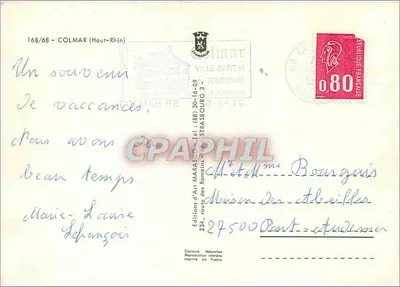 168/68 - COLMAR (Haut-Rhin)
Colmar
VILLE D'ART et
0.80
POSTES
RÉPUBLIQUE FRANÇAISE
Un souvenir
de vacances.
Nous avons du
beau temps
Marie-Louise
Lefrançois
Editions d'Art
234, route des Romains - STRASBOURG 3 - Tél. (88) 30-16-09
Couleurs Naturelles
Reproduction interdite
Imprimé en France
CPAPHIL
Mr et Mme Bourgeois
Maison des Abeilles
27500 Pont-Audemer